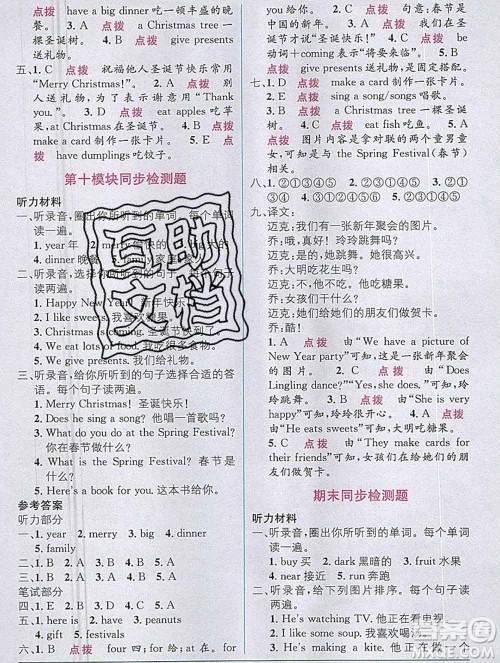 点拨 have a big dinner 吃一顿丰盛的晚
餐。 4. B 点拨 a Christmas tree 一棵
圣诞树。 5. A 点拨 give presents
送礼物。
五、1. C 点拨 祝福他人圣诞节快乐用
"Merry Christmas!"。 2. A 点拨
别人送礼物,为了表示谢意用"Thank
you."。 3. C 点拨 eat apples 吃苹
果, at Christmas 在圣诞节。 4. B 点拨
make a card 制作一张卡片。 5. A 点拨
have dumplings 吃饺子。
第十模块同步检测题
听力材料
一、听录音,圈出你所听到的单词。每个单词
读一遍。
1. year 年 2. merry 愉快的
4. dinner 晚餐 5. family 家庭
二、听录音,选择你所听到的句子。每个句
子读两遍。
1. Happy New Year! 新年快乐!
2. I like sweets. 我喜欢糖果。
3. Christmas is coming. 圣诞节快到了。
4. We eat lots of food.
5. We give presents. 我们给礼物。
三、听录音,给你所听到的句子选择合适的答
语。每个句子读两遍。
1. Merry Christmas! 圣诞快乐!
2. Does he sing a song? 他唱一首歌吗?
3. What do you do at the Spring Festival?
你在春节做什么?
4. What is the Spring Festival? 春节是
什么?
5. Here's a book for you. 这本书给你。
参考答案
听力部分
一、1. year 2. merry 3. big 4. dinner
5. family
二、1. B 2. A 3. A 4. B 5. A
三、1. B 2. A 3. A 4. B 5. A
笔试部分
四、1. E 2. D 3. A 4. B 5. C
五、1. have 2. presents 3. piano
4. gift 5. festivals
六、1. B 点拨 four 四; for 给; at 在。for
如何说。 2. A 点拨 句意:春节是
中国的新年。 3. C 点拨 句意:圣诞
节快到了才说"Christmas is coming."。be
动词+coming 表示"将要来临"。 4. B
点拨 a Christmas tree 一棵圣诞树。
5. A 点拨 give presents
送礼物,是固定搭配。
七、1. D 点拨 make a card 制作一张卡片。
2. E 点拨 sing a song/songs 唱歌。
3. B 点拨 a Christmas tree 一棵圣诞
树。 4. C 点拨 eat fish 吃鱼。 5. A
点拨 图片内容是拿对联的两个童男童
女,可知是与 the Spring Festival(春节)相
关。
八、1. ②①③④⑤ 2. ①②③④⑤
九、译文:
迈克:我们有一张新年晚会的图片。
乔:哦,真好!玲玲跳舞吗?
迈克:是的,她跳舞。她很高兴。
乔:大明吃什么?
迈克:他吃糖果。他喜欢糖果。
乔:女孩们干什么?
迈克:她们给她们的朋友们做贺卡。
1. T 点拨 由"We have a picture of
New Year party"可知,这是一张新年晚会
的图片。 2. T 点拨 由"Does
Lingling dance?""Yes, she does."可知,玲
玲跳舞。 3. F 点拨 由"She is very
happy"可知,她很高兴。 4. F 点拨
由"He eats sweets"可知,大明吃糖果。
5. T 点拨 由"They make cards for
their friends"可知,女孩们给她们的朋
友们做贺卡。
期末同步检测题
听力材料
一、听录音,圈出你所听到的单词。每个单词
读一遍。
1. buy 买 2. dark 黑暗的 3. fruit 水果
4. near 接近 5. run 奔跑
二、听录音,给下列图片排序。每个句子读两
遍。
1. He's watching TV. 他正在看电视
2. I like soup. 我喜欢汤。
3. He's making a kite. 他正在做一个